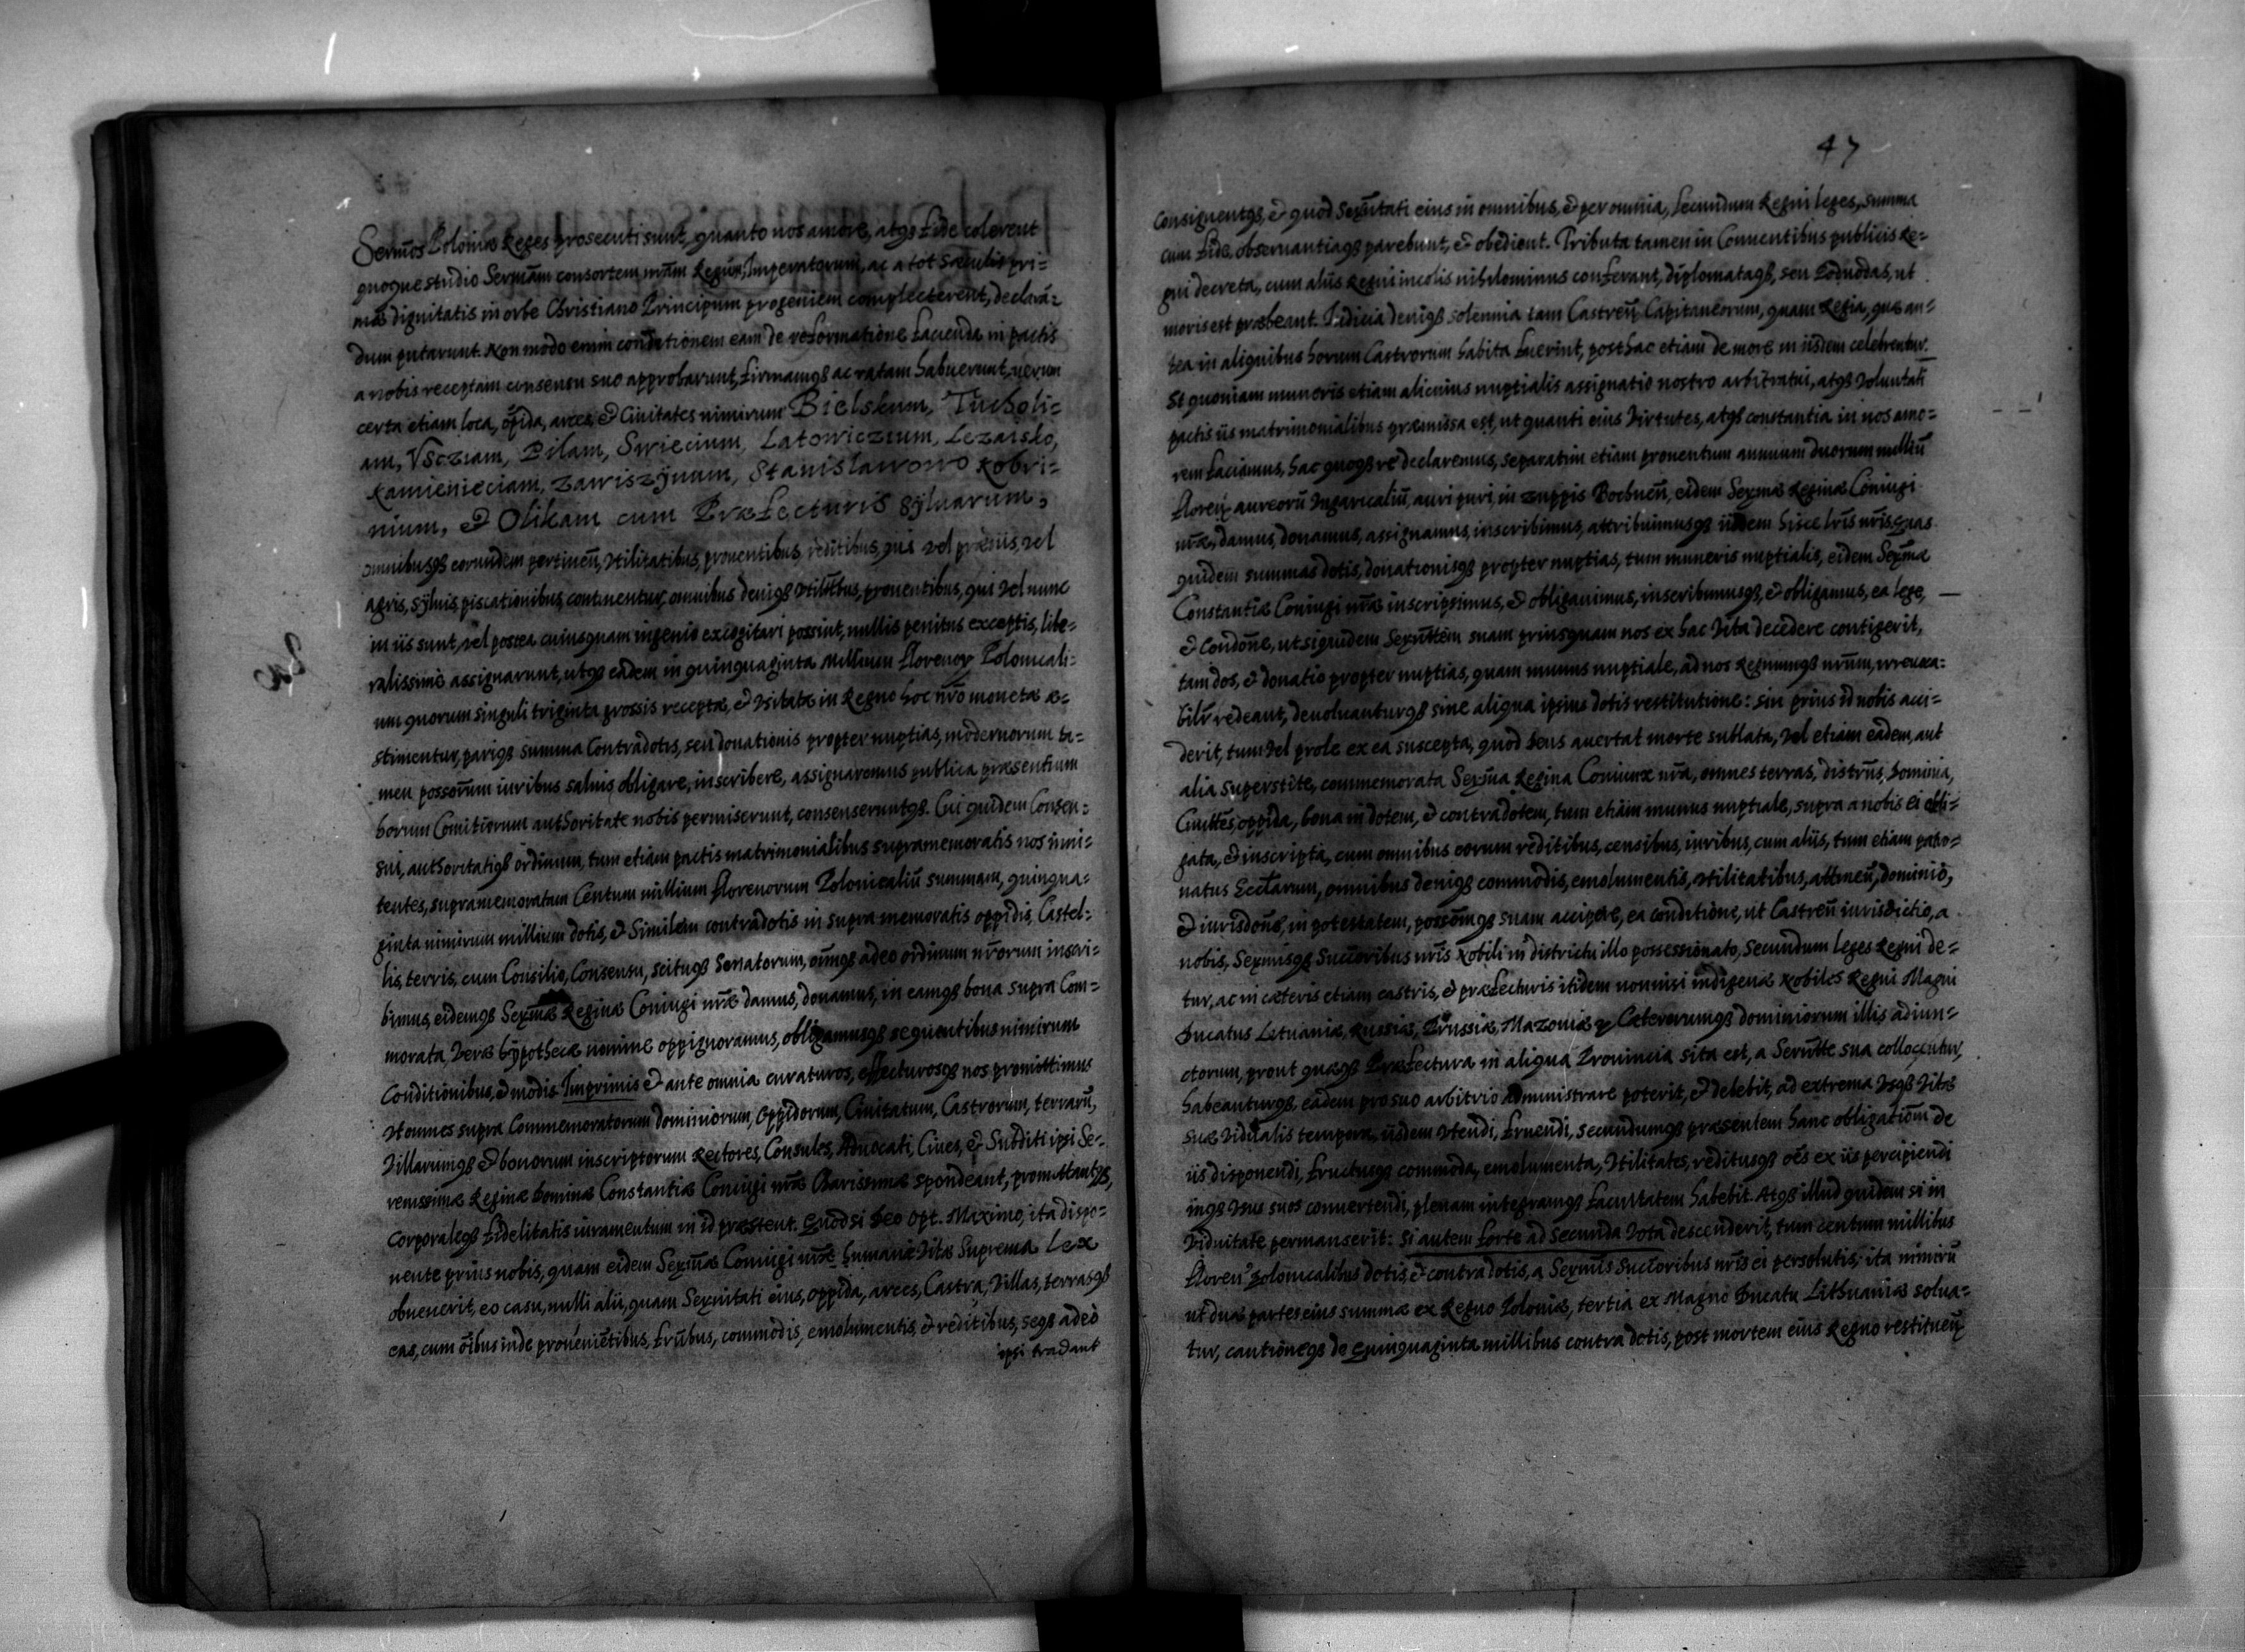 Sermos Poloniæ Reges prosecuti sunt, quanto nos amore, atqꝫ fide colerent
quoque studio Sermam consortem nram Regum, Imperatorum, ac a tot sæculis pri=
mæ dignitatis in orbe Christiano Principum progeniem complecterent, declarā=
dum putarunt. Non modo enim conditionem eam de reformatione facienda in pactis
a nobis receptam consensu suo approbarunt, firmamqꝫ ac ratam habuerunt, uerum
certa etiam loca, opida, arces, et Ciuitates nimirum Bielskum, Tucholi=
am, Vscziam, Pilam, Swiecium, Latowiczium, Lezaisko,
Kamienieciam, Zawiszÿnum, Stanislawowo Kobri=
nium, et Olikam cum Præfecturis Sÿluarum,
omnibusqꝫ eorundem pertineñ, Vtilitatibus, prouentibus, reditibus, qui vel prædiis, vel
agris, sÿluis, piscationibus continentur, omnibus deniqꝫ vtilitbus, prouentibus, qui vel nunc
in iis sunt, vel postea cuiusquam ingenio excogitari possint, nullis penitus exceptis, libe=
ralissimè assignarunt, utqꝫ eadem in quinquaginta Millium florenoꝝ Polonicali=
um quorum singuli triginta grossis receptæ, et vsitatæ in Regno hoc nro monetæ æ=
stimentur, pariqꝫ summa Contradotis, seu donationis propter nuptias, modernorum ta=
men possorum iuribus saluis obligare, inscribere, assignaremus publica præsentium
horum Comitiorum authoritate nobis permiserunt, consenseruntqꝫ. Cui quidem Consen=
sui, authoritatiqꝫ ordinum, tum etiam pactis matrimonialibus supramemoratis nos inni=
tentes, supramemoratam Centum millium florenorum Polonicaliū summam, quinqua=
ginta nimirum millium dotis, et Similem contradotis in supra memoratis oppidis, Castel=
lis, terris, cum Consilio, Consensu, scituqꝫ Senatorum, oīmqꝫ adeo ordinum nrorum inscri=
bimus, eidemqꝫ Sermæ Reginæ Coniugi nræ damus, donamus, in eamqꝫ bona supra Com=
morata, veræ hÿpothecæ nomine oppignoramus, obligamusqꝫ sequentibus nimirum
Conditionibus, et modis. Imprimis et ante omnia curaturos, effecturosqꝫ nos promittimus
Vt omnes supra Commemoratorum dominiorum, Oppidorum, Ciuitatum, Castrorum, terrarū,
Villarumqꝫ et bonorum inscriptorum Rectores, Consules, Aduocati, Ciues, et Subditi ipsi Se=
renissimæ Reginæ Dominæ Constantiæ Coniugi nræ Charissimæ spondeant, promittantqꝫ,
corporaleqꝫ fidelitatis iuramentum in id præstent. Quod si Deo Opt. Maximo, ita dispo=
nente prius nobis, quam eidem Sermæ Coniugi nræ humanæ Vitæ Suprema Lex
obuenerit, eo casu, nulli alii, quam Serenitati eius, oppida, arces, Castra, Villas, terrasqꝫ
eas, cum oībus inde prouenietibus, frūbus, commodis, emolumentis, et reditibus, seqꝫ adeò
ipsi tradant
47
Consignentqꝫ, et quod Serenitati eius in omnibus, et per omnia, secundum Regni leges, summa
cum fide, obseruantiaqꝫ parebunt, et obedient. Tributa tamen in Conuentibus publicis Re=
gni decreta, cum aliis Regni incolis nihilominus conferant, diplomataqꝫ, seu Podwodas, ut
moris est præbeant. Iudicia deniqꝫ solennia tam Castreñ, Capitaneorum, quam Regia, quæ an=
tea in aliquibus horum Castrorum habita fuerint, posthac etiam de more in iisdem celebrentur.
Et quoniam muneris etiam alicuius nuptialis assignatio nostro arbitratui, atqꝫ Voluntati
pactis iis matrimonialibus præmissa est, ut quanti eius Virtutes, atqꝫ constantia in nos amo=
rem faciamus, hac quoqꝫ re declaremus, separatim etiam prouentum annuum duorum milliū
floreñ aureorū Vngaricaliū, auri puri, in Zuppis Bochneñ, eidem Sermæ Reginæ Coniugi
nræ, damus, donamus, assignamus, inscribimus, attribuimusqꝫ iisdem hisce lris nris, quas
quidem summas dotis, donationisqꝫ propter nuptias, tum muneris nuptialis, eidem Sermæ
Constantiæ Coniugi nræ inscripsimus, et obligauimus, inscribimusqꝫ, et obligamus, ea lege,
et Condone, ut siquidem Serenittem suam priusquam nos ex hac Vita decedere contigerit,
tam dos, et donatio propter nuptias, quam munus nuptiale, ad nos Regnumqꝫ nrum, irreuoca=
bilr redeant, deuoluanturqꝫ sine aliqua ipsius dotis restitutione: sin prius id nobis acci=
derit, tum vel prole ex ea suscepta, quod Deus auertat morte sublata, vel etiam eadem, aut
alia superstite, commemorata Serma Regina Coniunx nra, omnes terras, distrus, Dominia,
Ciuittes, oppida, bona in dotem, et contradotem, tum etiam munus nuptiale, supra a nobis ei obli=
gata, et inscripta, cum omnibus eorum reditibus, censibus, iuribus, cum aliis, tum etiam patro=
natus Ecclarum, omnibus deniqꝫ commodis, emolumentis, vtilitatibus, attineñ, dominio,
et iurisdone, in potestatem, possomqꝫ suam accipere, ea conditione, ut Castreñ iurisdictio, a
nobis, Sermisqꝫ Succoribus nris Nobili in districtu illo possessionato, secundum leges Regni de=
tur, ac in cæteris etiam castris, et præfecturis itidem nonnisi indigenæ Nobiles Regni Magni
Ducatus Lituaniæ, Russiæ, Prussiæ, Mazouiæ, Cæterorumqꝫ dominiorum illis adiun=
ctorum, prout quæqꝫ Præfectura in aliqua Prouincia sita est, a Sernitte sua collocentur,
habeanturqꝫ, eadem pro suo arbitrio administrare poterit, et debebit, ad extrema vsqꝫ Vitæ
suæ Vidualis tempora, iisdem vtendi, fruendi, secundumqꝫ præsentem hanc obligationem de
iis disponendi, fructusqꝫ commoda, emolumenta, vtilitates, reditusqꝫ oēs ex iis percipiendi
inqꝫ vsus suos conuertendi, plenam integramqꝫ facultatem habebit. Atqꝫ illud quidem si in
Viduitate permanserit: si autem forte ad secunda Vota descenderit, tum centum millibus
floreñ Polonicalibus dotis, et contradotis, a Sermis Succoribus nris ei persolutis, ita nimirū
ut duæ partes eius summæ ex Regno Poloniæ, tertia ex Magno Ducatu Lithuaniæ solua=
tur, cautioneqꝫ de Quinquaginta millibus contradotis, post mortem eius Regno restitueñ